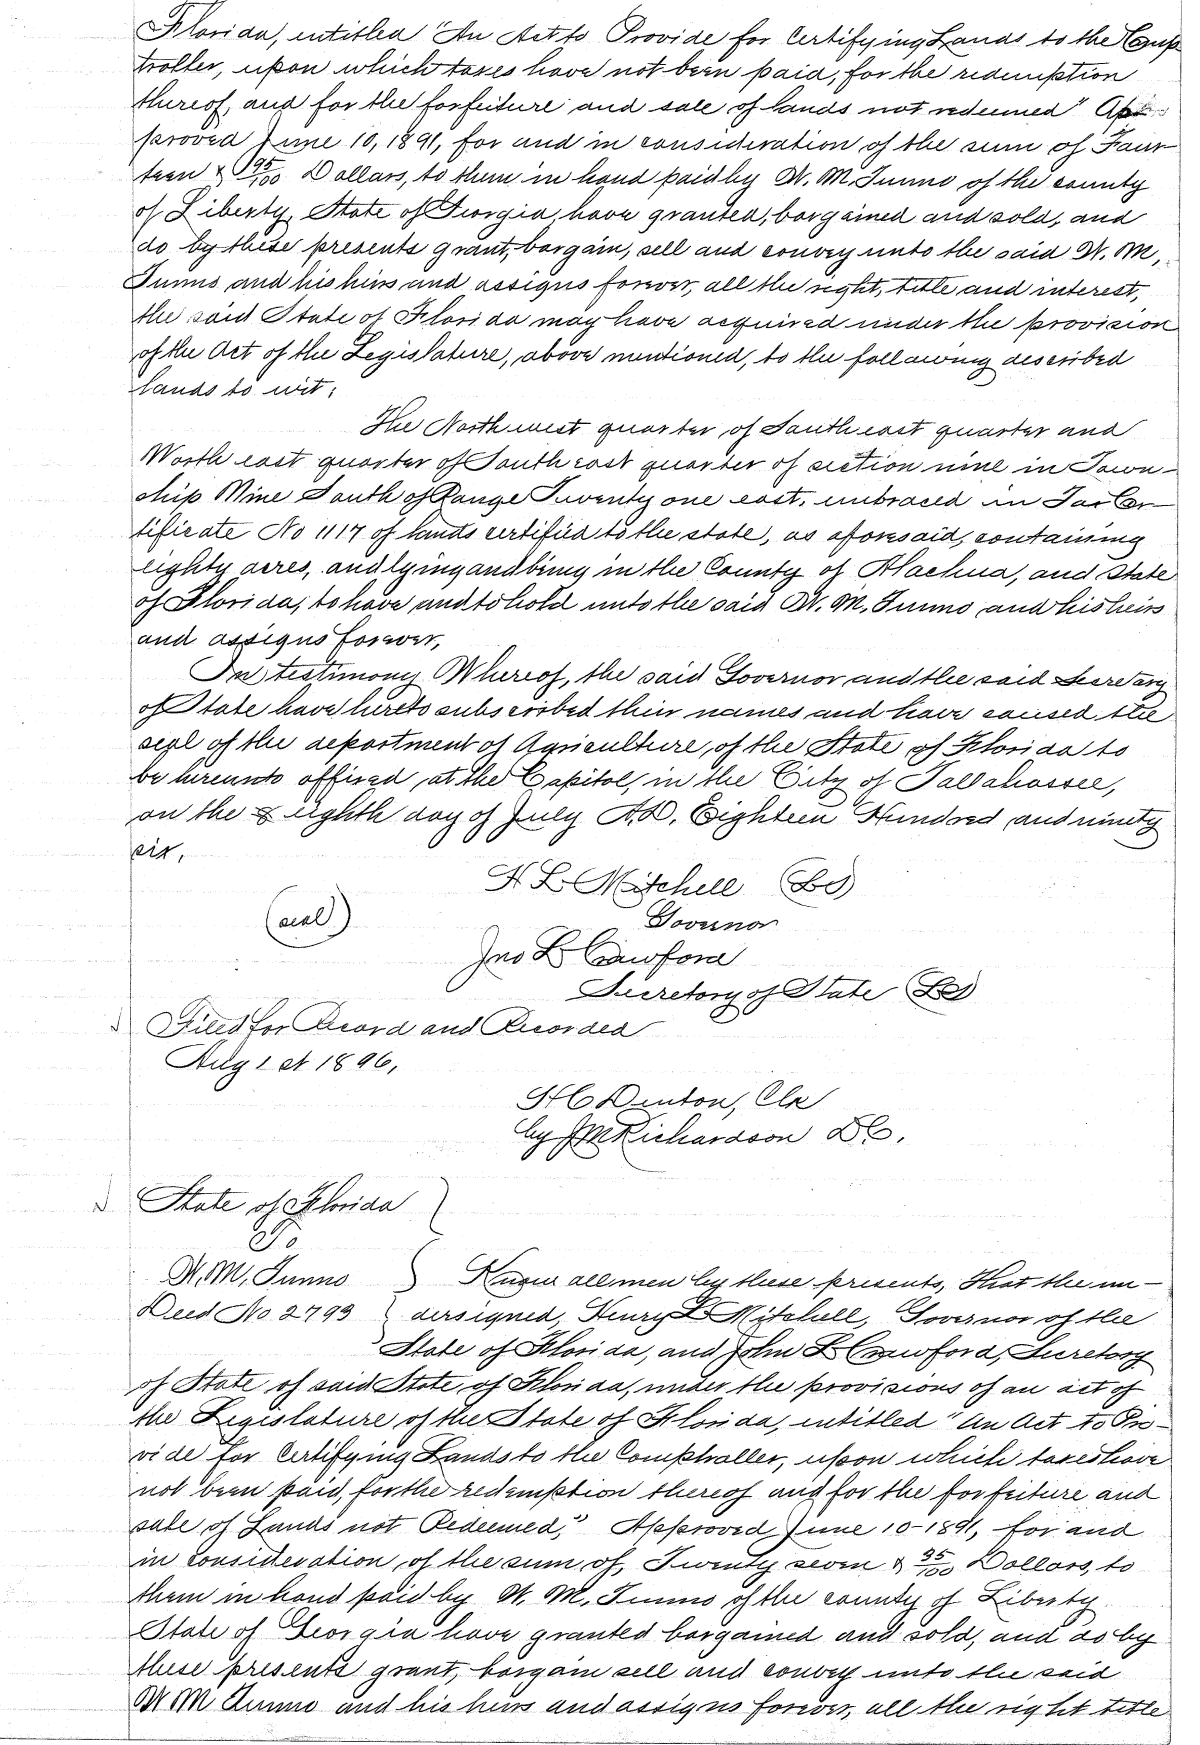 Florida, entitled "An Act to Provide for Certifying Lands to the Comp
troller, upon which taxes have not been paid, for the redemption
thereof, and for the forfeiture and sale of lands not redeemed" Ap
proved June 10, 1891, for and in consideration of the sum of Four
teen & 95/100 Dollars, to them in hand paid by W. M. Tunno of the county
of Liberty, State of Georgia, have granted, bargained and sold, and
do by these presents grant, bargain, sell and convey unto the said W. M,
Tunno and his heirs and assigns forever, all the right, title and interest,
the said State of Florida may have acquired under the provision
of the Act of the Legislature, above mentioned, to the following described
lands to wit;
The North west quarter of South east quarter and
North east quarter of South east quarter of section nine in Town-
ship Nine South of Range Twenty one east, embraced in Tax Cer-
tificate No 1117 of lands certified to the state, as aforesaid, containing
eighty acres, and lying and being in the County of Alachua, and State
of Florida, to have and to hold unto the said W. M. Tunno and his heirs
and assigns forever,
In testimony Whereof, the said Governor and the said Secretary
of State have hereto subscribed their names and have caused the
seal of the department of Agriculture, of the State of Florida to
be hereunto affixed, at the Capitol, in the City of Tallahassee,
on the eighth day of July A.D. Eighteen Hundred and ninety
six,
H L Mitchell (LS)
(seal) Governor
Jno L Crawford
Secretary of State (LS)
Filed for Record and Recorded
Aug 1st 1896,
H C Denton, Clk
by J M Richardson D C,
State of Florida
To
W. M. Tunno Know all men by these presents, That the un-
Deed No 2793 dersigned, Henry L Mitchell, Governor of the
State of Florida, and John L Crawford, Secretary
of State of said State of Florida, under the provisions of an act of
the Legislature of the State of Florida, entitled "An Act to Pro-
vide for Certifying Lands to the Comptroller, upon which taxes have
not been paid, for the redemption thereof and for the forfeiture and
sale of Lands not Redeemed," Approved June 10-1891, for and
in consideration of the sum of, Twenty seven & 95/100 Dollars, to
them in hand paid by W. M. Tunno of the county of Liberty
State of Georgia have granted bargained and sold, and do by
these presents grant, bargain sell and convey unto the said
W M Tunno and his heirs and assigns forever, all the right title